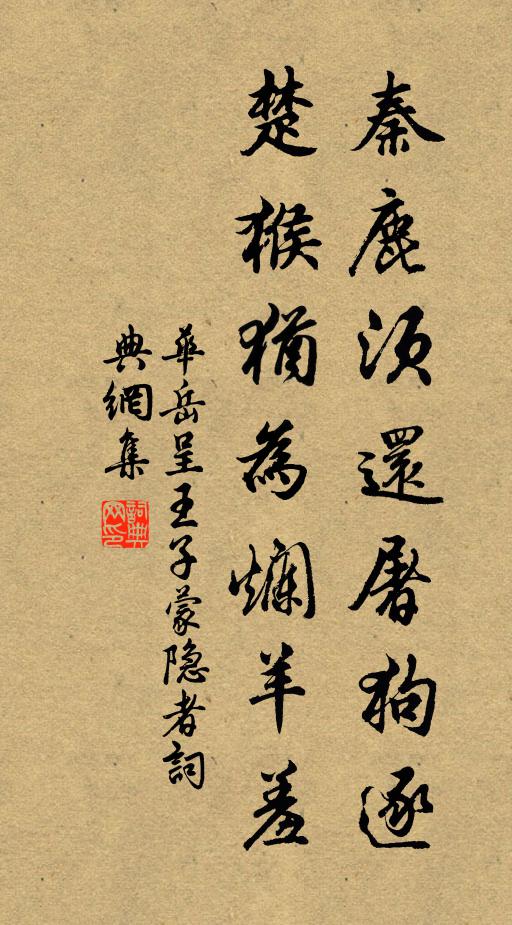 秦鹿須還屠狗逐
楚猴猶為爛羊羞
華岳呈王子蒙隐者詞
典網集
詞典網印